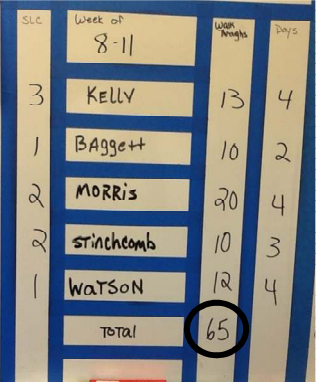 SLC Week of Walk Aroghs Days
8-11
3 KELLY 13 4
1 BAggett 10 2
2 MORRiS 20 4
2 Stinchcomb 10 3
1 WATSON 12 4
TOTAl 65